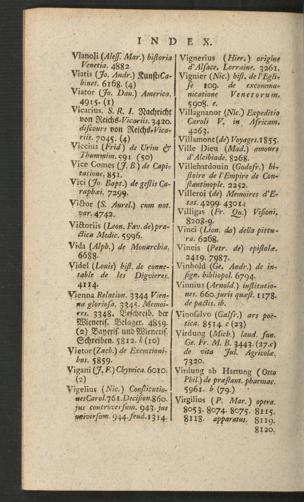 INDEX.
Vianoli (Aless. Mar.) historia
Venetia. 4882
Viatis (Jo. Andr.) Kunst-Ca-
binet. 6168. (4)
Viator (Jo. Dan.) America.
4915. (1)
Vicarius. S. R. I. Nachricht
von Reichs-Vicariis. 3420.
discours von Reichs-Vica-
riis. 7045. (4)
Viccius (Frid.) de Urim &
Thummim. 591 (50)
Vice Comes (J. B.) de Capi-
tatione. 851.
Vici (Jo. Bapt.) de gestis Ca-
raphæi. 7299.
Victor (S. Aurel.) cum not.
var. 4742.
Victoriis (Leon. Fav. de) pra-
ctica Medic. 5996.
Vida (Alph.) de Monarchia.
6688.
Videl (Louis) hist. de conne-
table de les Digvieres.
4114.
Vienna Relation. 3344 Vien-
na gloriosa. 3345. Memoi-
res. 3348. Beschreib. der
Wieneris. Belager. 4859.
(2) Bayeris. und Wieneris.
Schreiben. 5812. b (10)
Vietor (Zach.) de Exemtioni-
bus. 5859.
Vigani (J. F.) Chymica. 6010.
(2)
Vigelius (Nic.) Constitutio-
nes Carol. 761. Decision. 860.
jus controversum. 943. jus
universum. 944. feud. 1314.
Vignerius (Hier.) origine
d'Alsace. Lorraine. 3261.
Vignier (Nic.) hist. de l'Egli-
se 109. de excommu-
nicatione Venetorum.
5908. e.
Villagnanor (Nic.) Expeditio
Caroli V. in Africam.
4263.
Villamont (de) Voyages. 1855.
Ville Dieu (Mad.) amours
d'Alcibiade. 5268.
Villehardouin (Godefr.) hi-
stoire de l'Empire de Con-
stantinople. 2252.
Villeroi (de) Memoires d'E-
tat. 4299. 4301
Villigas (Fr. Qu.) Visioni.
8208-9.
Vinci (Lion. da) della pittu-
ra. 6268.
Vineis (Petr. de) epistolæ.
2419. 7987.
Vinhold (Ge. Andr.) de in-
sign. bibliopol. 6794.
Vinnius (Arnold.) institutio-
nes. 660. juris quæst. 1178.
de pactis. ib.
Vinosalvo (Galfr.) ars poe-
tica. 8514. e (23)
Virdung (Mich.) laud. fun.
Ge. Fr. M. B. 3443. (27. c)
de vita Jul. Agricolæ.
7320.
Virdung ab Hartung (Otto
Phil.) de præstant. pharmac.
5961. b (79.)
Virgilius (P. Mar.) opera.
8053. 8074. 8075. 8115.
8118. apparatus. 8119.
8120.